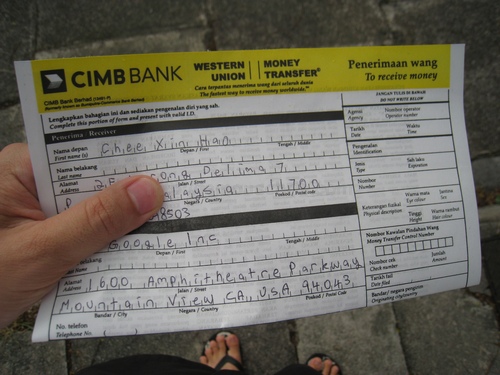 CIMB BANK WESTERN UNION MONEY TRANSFER® Penerimaan wang
To receive money
CIMB Bank Berhad
Cara terpantas menerima wang dari seluruh dunia
The fastest way to receive money worldwide
Lengkapkan bahagian ini dan sediakan pengenalan diri yang sah.
Complete this portion of form and present with valid I.D.
JANGAN TULIS DI BAWAH
DO NOT WRITE BELOW
Penerima / Receiver
Nama depan
First name (s) Chee Xin Han
Depan / First Tengah / Middle
Nama belakang
Last name
Alamat Delima 7
Address
Jalan / Street
laysia 11700
Negara / Country Poskod / Postal code
8503
Google Inc
Depan / First Tengah / Middle
Alamat
Address 1600 Amphitheatre Parkway
Jalan / Street
Mountain View CA, USA 94043
Bandar / City Negara / Country Poskod / Postal Code
No. telefon
Telephone No.
Agensi Nombor operator
Agency Operator number
Tarikh Waktu
Date Time
Pengenalan
Identification
Jenis Sah laku
Type Expiration
Nombor
Number
Keterangan fizikal Warna mata Jantina
Physical description Eye colour Sex
Tinggi Warna rambut
Height Hair colour
Nombor Kawalan Pindahan Wang
Money Transfer Control Number
Nombor cek Jumlah
Check number Amount
Tarikh fail
Date filed
Bandar/ negara pengirim
Originating city/country